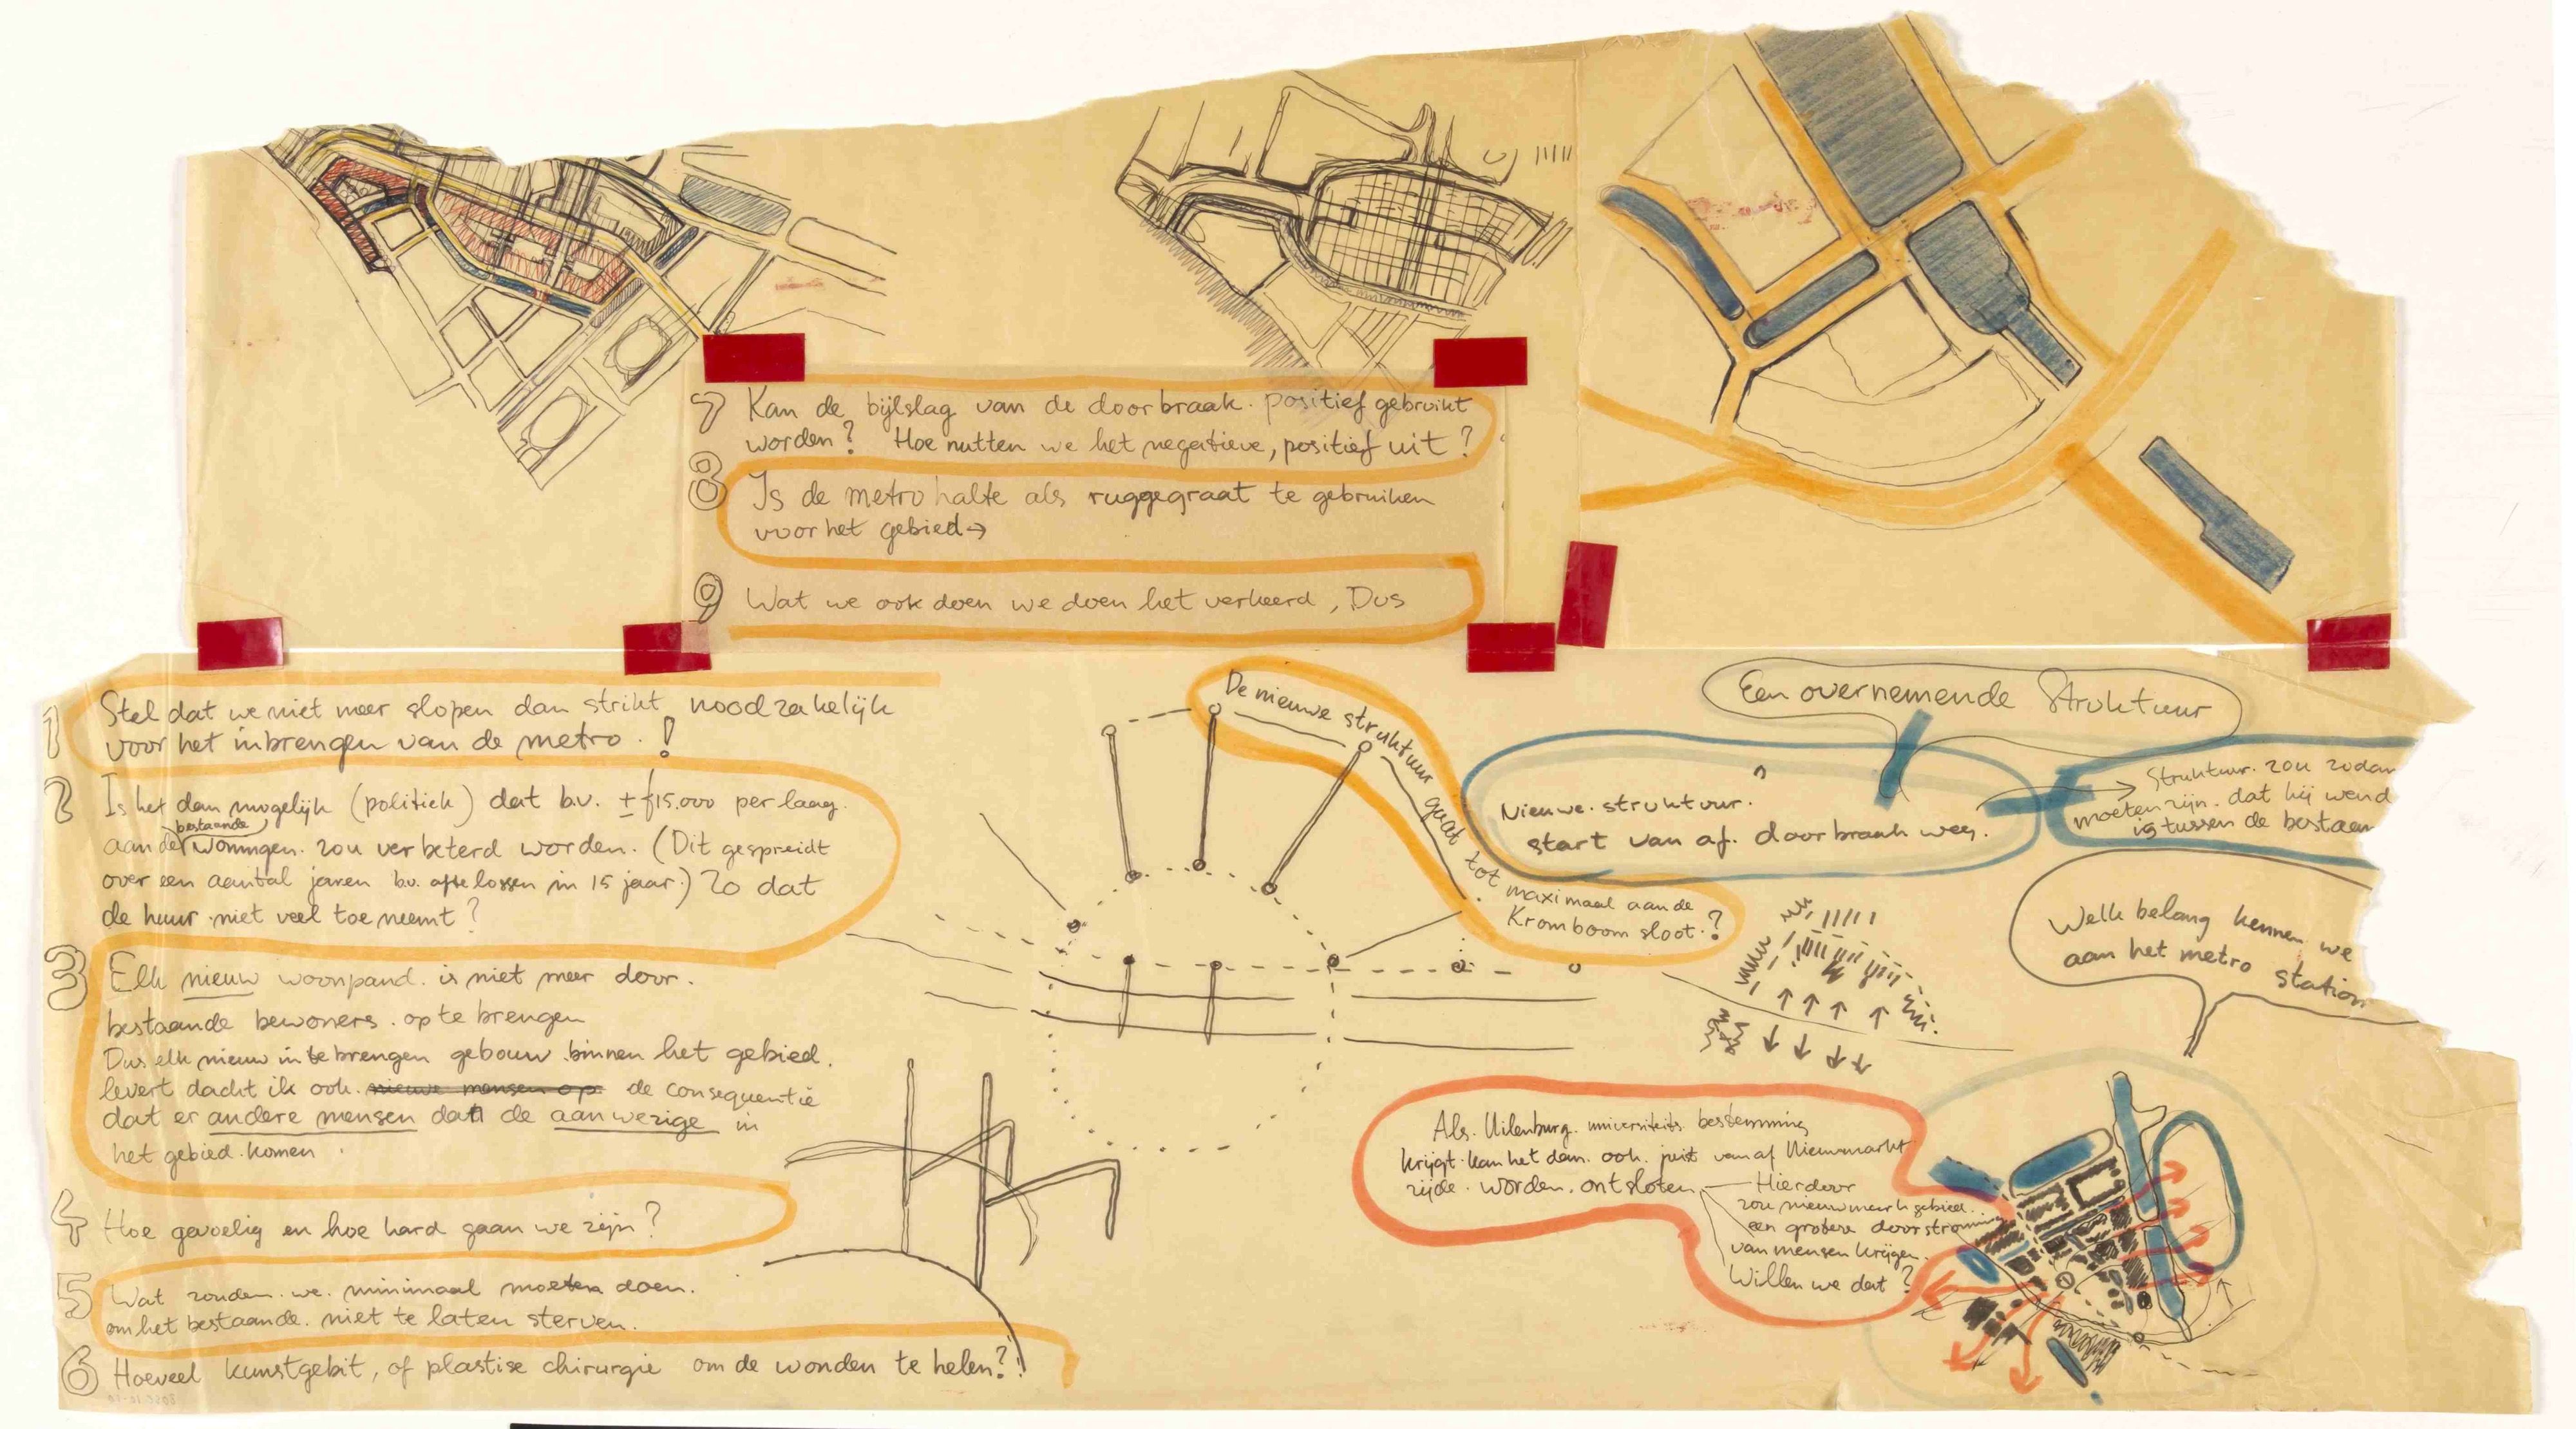 7 Kan de bijlslag van de doorbraak. positief gebruikt
worden? Hoe nutten we het negatieve, positief uit?
8 Is de metro halte als ruggegraat te gebruiken
voor het gebied →
9 Wat we ook doen we doen het verkeerd, Dus
1 Stel dat we niet meer slopen dan strikt noodzakelijk
voor het inbrengen van de metro. !
2 Is het dan mogelijk (politiek) dat b.v. ± ƒ15.000 per laag.
bestaande
aan de woningen. zou verbeterd worden. (Dit gespreidt
over een aantal jaren b.v. af te lossen in 15 jaar.) Zo dat
de huur niet veel toe neemt?
3 Elk nieuw woonpand. is niet meer door.
bestaande bewoners. op te brengen
Dus elk nieuw in te brengen gebouw binnen het gebied.
levert dacht ik ook. nieuwe mensen op de consequentie
dat er andere mensen dan de aanwezige in
het gebied komen
4 Hoe gevoelig en hoe hard gaan we zijn?
5 Wat zouden. we. minimaal moeten doen.
om het bestaande. niet te laten sterven.
6 Hoeveel kunstgebit, of plastise chirurgie om de wonden te helen?!
De nieuwe struktuur gaat tot maximaal aan de
Kromboom sloot.?
Een overnemende Struktuur
Nieuwe. struktuur.
start van af. doorbraak weg.
Struktuur. zou zodan
moeten zijn. dat hij wend
is tussen de bestaan
Welk belang kennen we
aan het metro station
Als. Uilenburg. universiteits bestemming
krijgt. kan het dan. ook. juist vanaf Nieuwmarkt
zijde. worden. ontsloten. — Hierdoor
zou nieuwmarkt gebied.
een grotere doorstroming
van mensen krijgen.
Willen we dat?